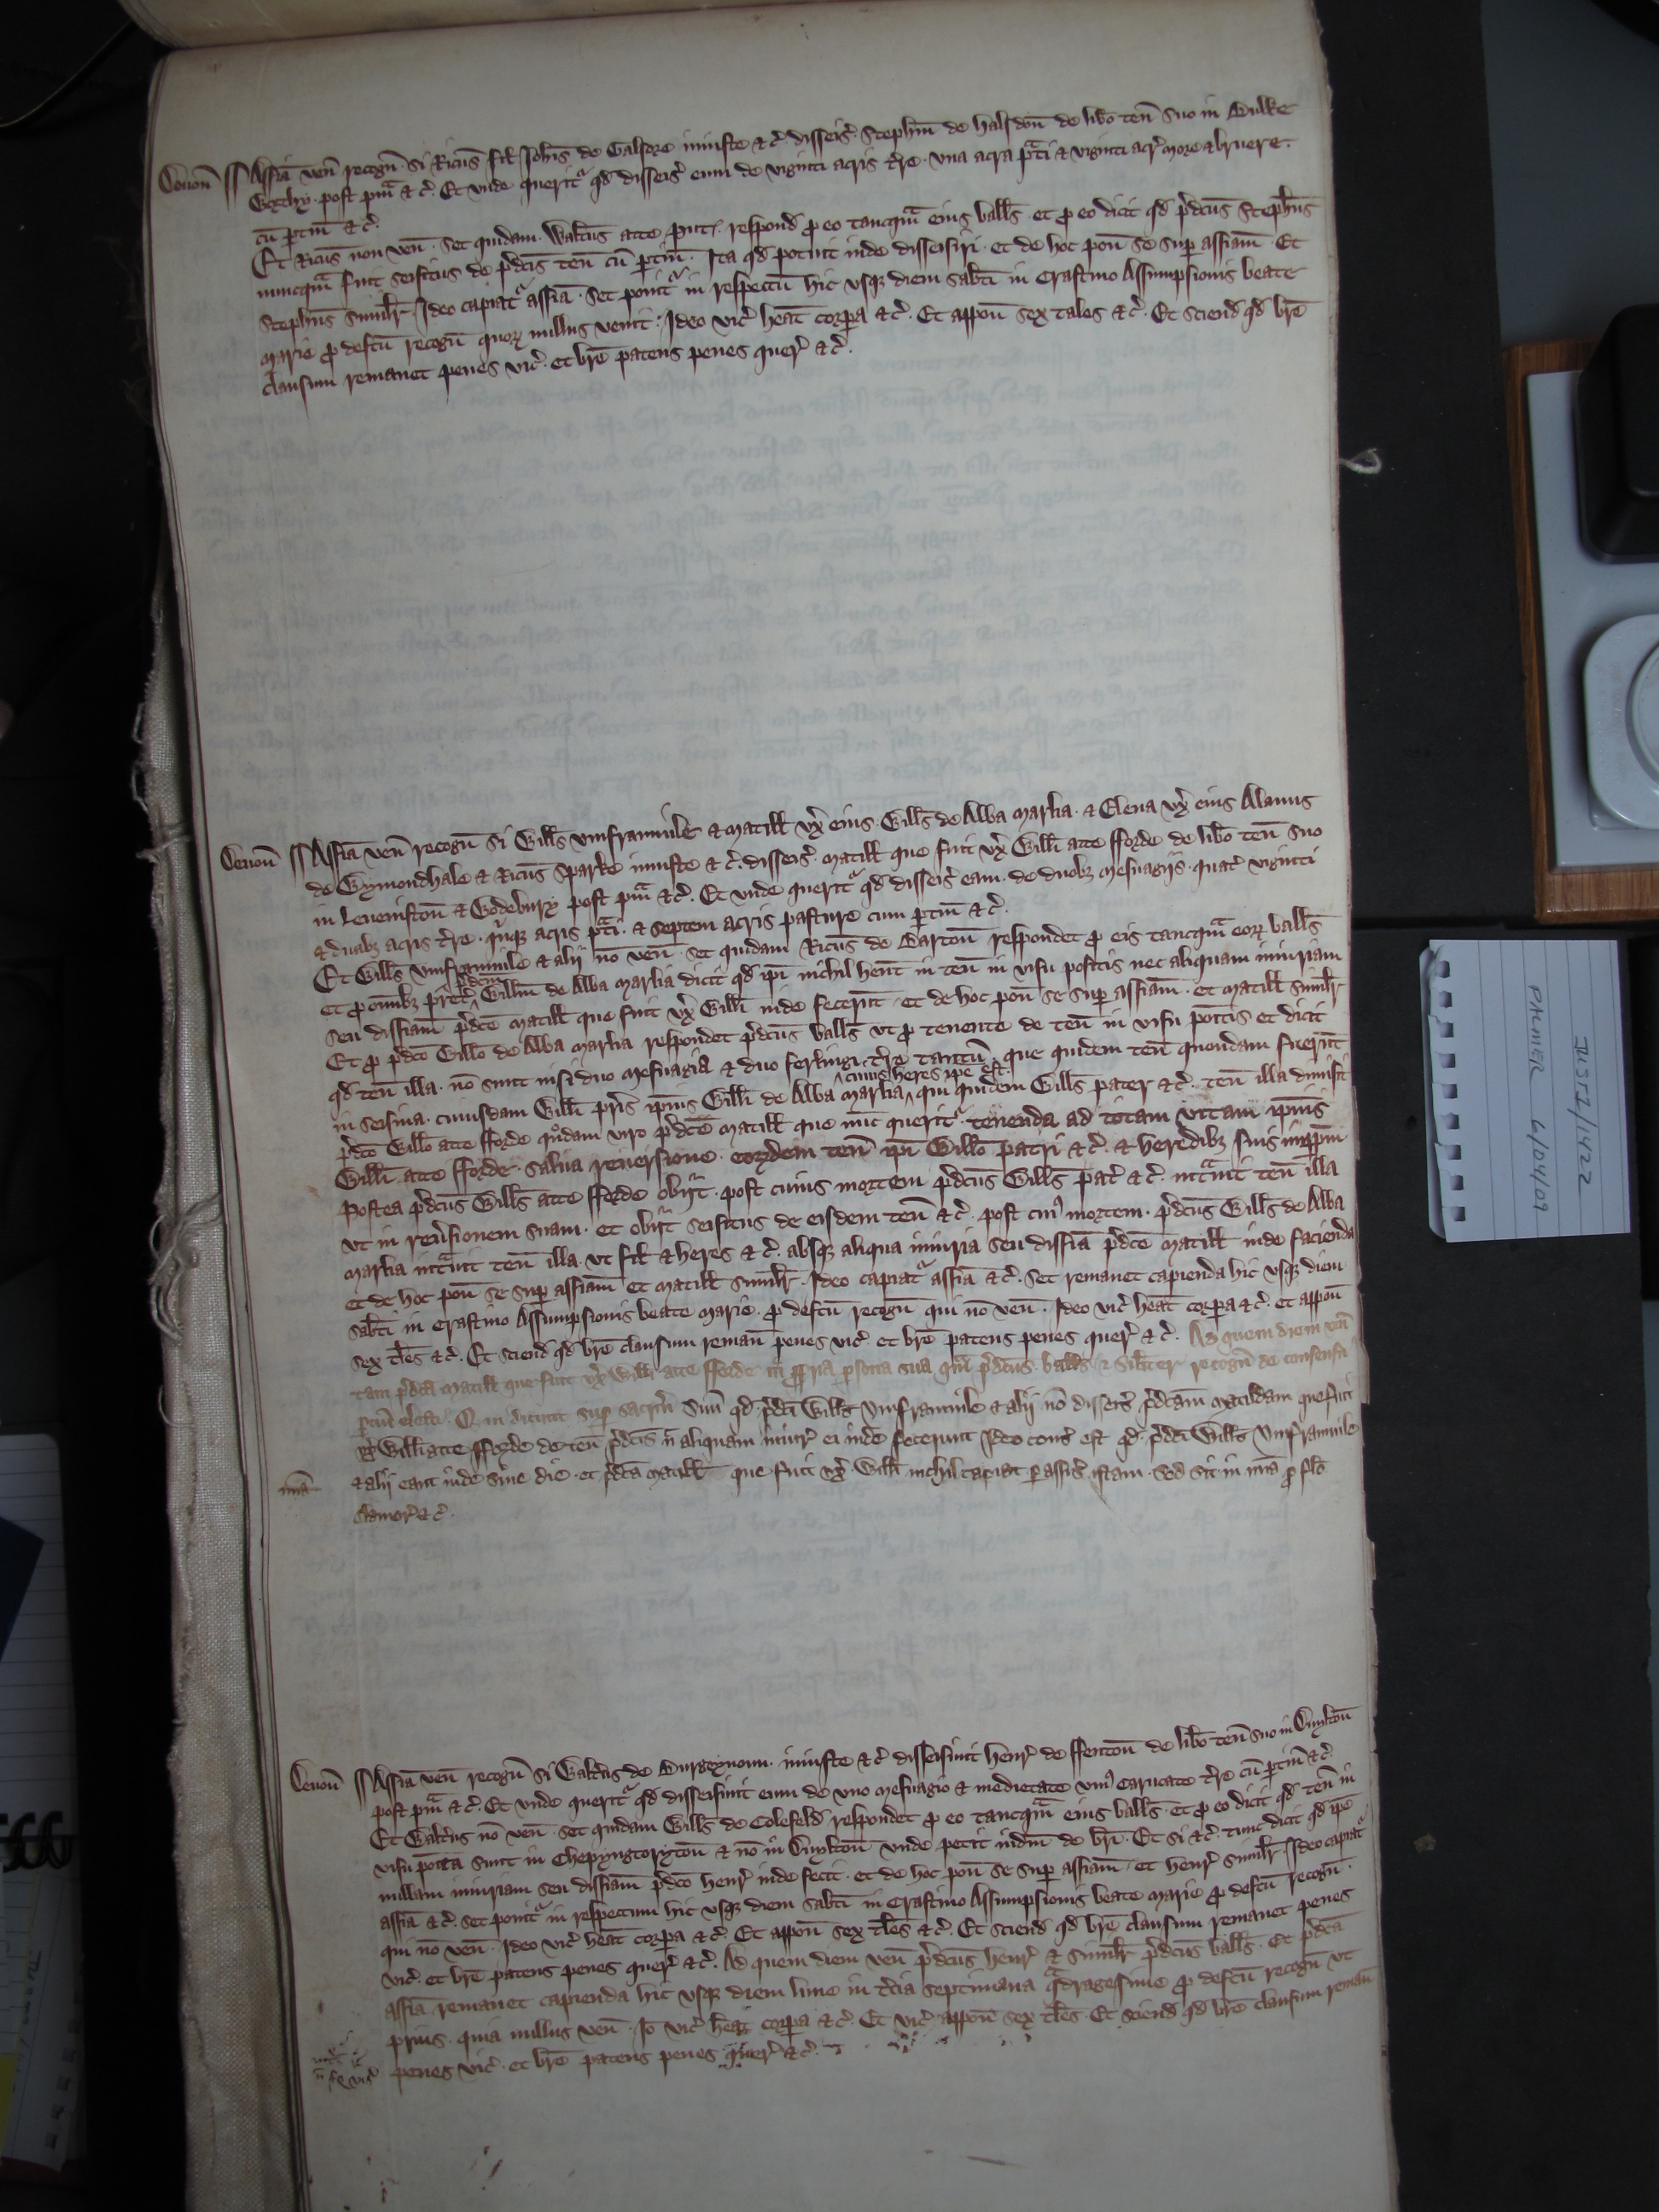 Deuoñ Assiã ven̄ recogn̄ si Ricūs fil̄ Joh̄is de iniuste &c̃ disseis̃ Stephm̄ de Halsdoñ de lib̃o ten̄ suo in
post pm̃ã &c̃. Et vnde querit᷑ qd̃ disseis̃ eum de viginti acris tr̃e. vna acra p̃ti & viginti acr̃ more & bruere.
cū ptin̄ &c̃.
Et Ricūs non ven̄. Set quidam Walt̃us atte respond̃ p eo tancqm̃ eius ball̃s. et p eo dicit qd̃ p̃dc̃us Steph̃us
nuncqm̃ fuit seisitus de p̃dc̃is ten̄ cū ptin̄. Ita qd̃ potuit inde disseisiri. et de hoc pon̄ se sup assiam̄. Et
Steph̃us simil̃r. Ideo capiat᷑ assiã. Set ponit᷑ in respectū hic vsq diem sab̃ti in Crastino Assumpsionis beate
Marie p defc̃u recogn̄ quoꝝ nullus venit. Ideo vic̃ heat corpa &c̃. Et appon̄ sex tales &c̃. Et sciend̃ qd̃ br̃e
clausum remanet penes vic̃. et br̃e patens penes quer̃ &c̃.
Deuoñ Assiã ven̄ recogn̄ si Will̃s Vmframuile & Matill̃ vx̃ eius. Will̃s de Alba Marlia. & Elena vx̃ eius Alanus
de Wymondhale & Ricūs Sparke iniuste &c̃. disseis̃. Matill̃ que fuit vx̃ Will̃i atte fforde de lib̃o ten̄ suo
in Leuenistoñ & Godebury post pm̃ã &c̃. Et vnde querit᷑ qd̃ disseis̃ eam. de duobȝ mesuagijs. quat̃ viginti
& duabȝ acris tr̃e. quinqȝ acris p̃ti. & septem acris pasture cum ptin̄ &c̃.
Et Will̃s Vmframuile & alij nō ven̄. Set quidam Ricūs de Bartoñ respondet p eis tancqm̃ eoꝝ ball̃s
et p omībȝ pret̃ p̃dc̃m Will̃m de Alba Marlia dicit qd̃ ipi nichil hent in ten̄ in visu positis nec aliquam iniuriam
seu dissiam̄ p̃dc̃e Matill̃ que fuit vx̃ Will̃i inde fecerūt. et de hoc pon̄ se sup assiam̄. et Matill̃ simil̃r
Et p p̃dc̃o Will̃o de Alba Marlia respondet p̃dc̃us ball̃s vt p tenente de ten̄ in visu poitis et dicit
qd̃ ten̄ illa. nō sunt nisi duo mesuagia & duo ferlingi tr̃e tantū. que quidem ten̄ quondam fuerūt
in seisina. cuiusdam Will̃i pr̃is ip̃ius Will̃i de Alba Marlia cuius heres ipe est. qui quidem Will̃s pater &c̃. ten̄ illa dimisit
p̃dc̃o Will̃o atte fforde quōdam viro p̃dc̃e Matill̃ que nūc querit᷑. tenenda ad totam vitam ip̃ius
Will̃i atte fforde. salua reuersione. eoꝝdem ten̄ ipi Will̃o patri &c̃. & heredibȝ suis inppm̄
Postea p̃dc̃us Will̃s atte fforde obijt. post cuius mortem p̃dc̃us Will̃s pat̃ &c̃. intrauit ten̄ illa
vt in reuersionem suam. et obijt seisitus de eisdem ten̄ &c̃. post cui᷒ mortem. p̃dc̃us Will̃s de Alba
Marlia intrauit ten̄ illa. vt fil̃ & heres &c̃. absqȝ aliqua iniuria seu dissiã p̃dc̃e Matill̃ inde facienda
et de hoc pon̄ se sup assiam̄ et Matill̃ simil̃r. Ideo capiat᷑ assiã &c̃. Set remanet capienda hic vsqȝ diem
sab̃ti in Crastino Assumpsionis beate Marie. p defc̃u recogn̄ qui nō ven̄. Ideo vic̃ heat corpa &c̃. et appon̄
sex tl̃es &c̃. Et sciend̃ qd̃ br̃e clausum reman̄ penes vic̃ et br̃e patens penes quer̃ &c̃. Ad quem diem ven̄
tam p̃dc̃a Matill̃ que fuit vx̃ Will̃i atte fforde in ppria psona sua qm̃ p̃dc̃us ball̃s & simil̃iter recogn̄ de consensu
pciū electi. Qui dicunt sup sacr̃m suū qd̃ p̃dc̃i Will̃s Vmframuile & alij nō disseis̃ p̃dc̃am Matildam que fuit
vx̃ Will̃i atte fforde de ten̄ p̃dc̃is n̄ aliquam iniur̃ ei inde fecerunt Ideo cons̃ est qd̃ p̃dc̃i Will̃s Vmframuile
mĩa & alij eant inde sine die. et p̃dc̃a Matill̃ que fuit vx̃ Will̃i nichil capiat p assis̃ istam. Sed sit in mĩa p fl̃o
clamor̃ &c̃.
Deuoñ Assiã ven̄ recogn̄ si Walt̃us de iniuste &c̃ disseisiuit Henr̃ de ffentoñ de lib̃o ten̄ suo in
post pm̃ã &c̃. Et vnde querit᷑ qd̃ disseisiuit eum de vno mesuagio & medietate vni᷒ carucate tr̃e cū ptin̄ &c̃.
Et Walt̃us nō ven̄. Set quidam Will̃s de Colefeld̃ respondet p eo tancqm̃ eius ball̃s. Et p eo dicit qd̃ ten̄ in
visu poita sunt in Chepyngtoryntoñ & nō in vnde petit iudm̄ de br̃i. Et si &c̃. tunc dicit qd̃ ipe
nullam iniuriam seu dissiam̄ p̃dc̃o Henr̃ inde fecit. et de hoc pon̄ se sup assiam̄. et Henr̃ simil̃r. Ideo capiat᷑
assiã &c̃. Set ponit᷑ in respectum hic vsqȝ diem sab̃ti in Crastino Assumpsionis beate Marie p defc̃u recogn̄.
qui nō ven̄. Ideo vic̃ heat corpa &c̃. Et appon̄ sex tl̃es &c̃. Et sciend̃ qd̃ br̃e clausum remanet penes
vic̃. et br̃e patens penes quer̃ &c̃. Ad quem diem ven̄ p̃dc̃us Henr̃ & simil̃r p̃dc̃us ball̃s. Et p̃dc̃a
assiã remanet capienda hic vsqȝ diem lune in tr̃cia septimana qdragesime p defc̃u recogn̄ vt
prius. quia nullus ven̄. Io vic̃ heat corpa &c̃. Et vic̃ appon̄ sex tl̃es. Et sciend̃ qd̃ br̃e clausum reman̄
penes vic̃. et br̃e patens penes quer̃ &c̃.
JUST/1422
PALMER 6/04/09